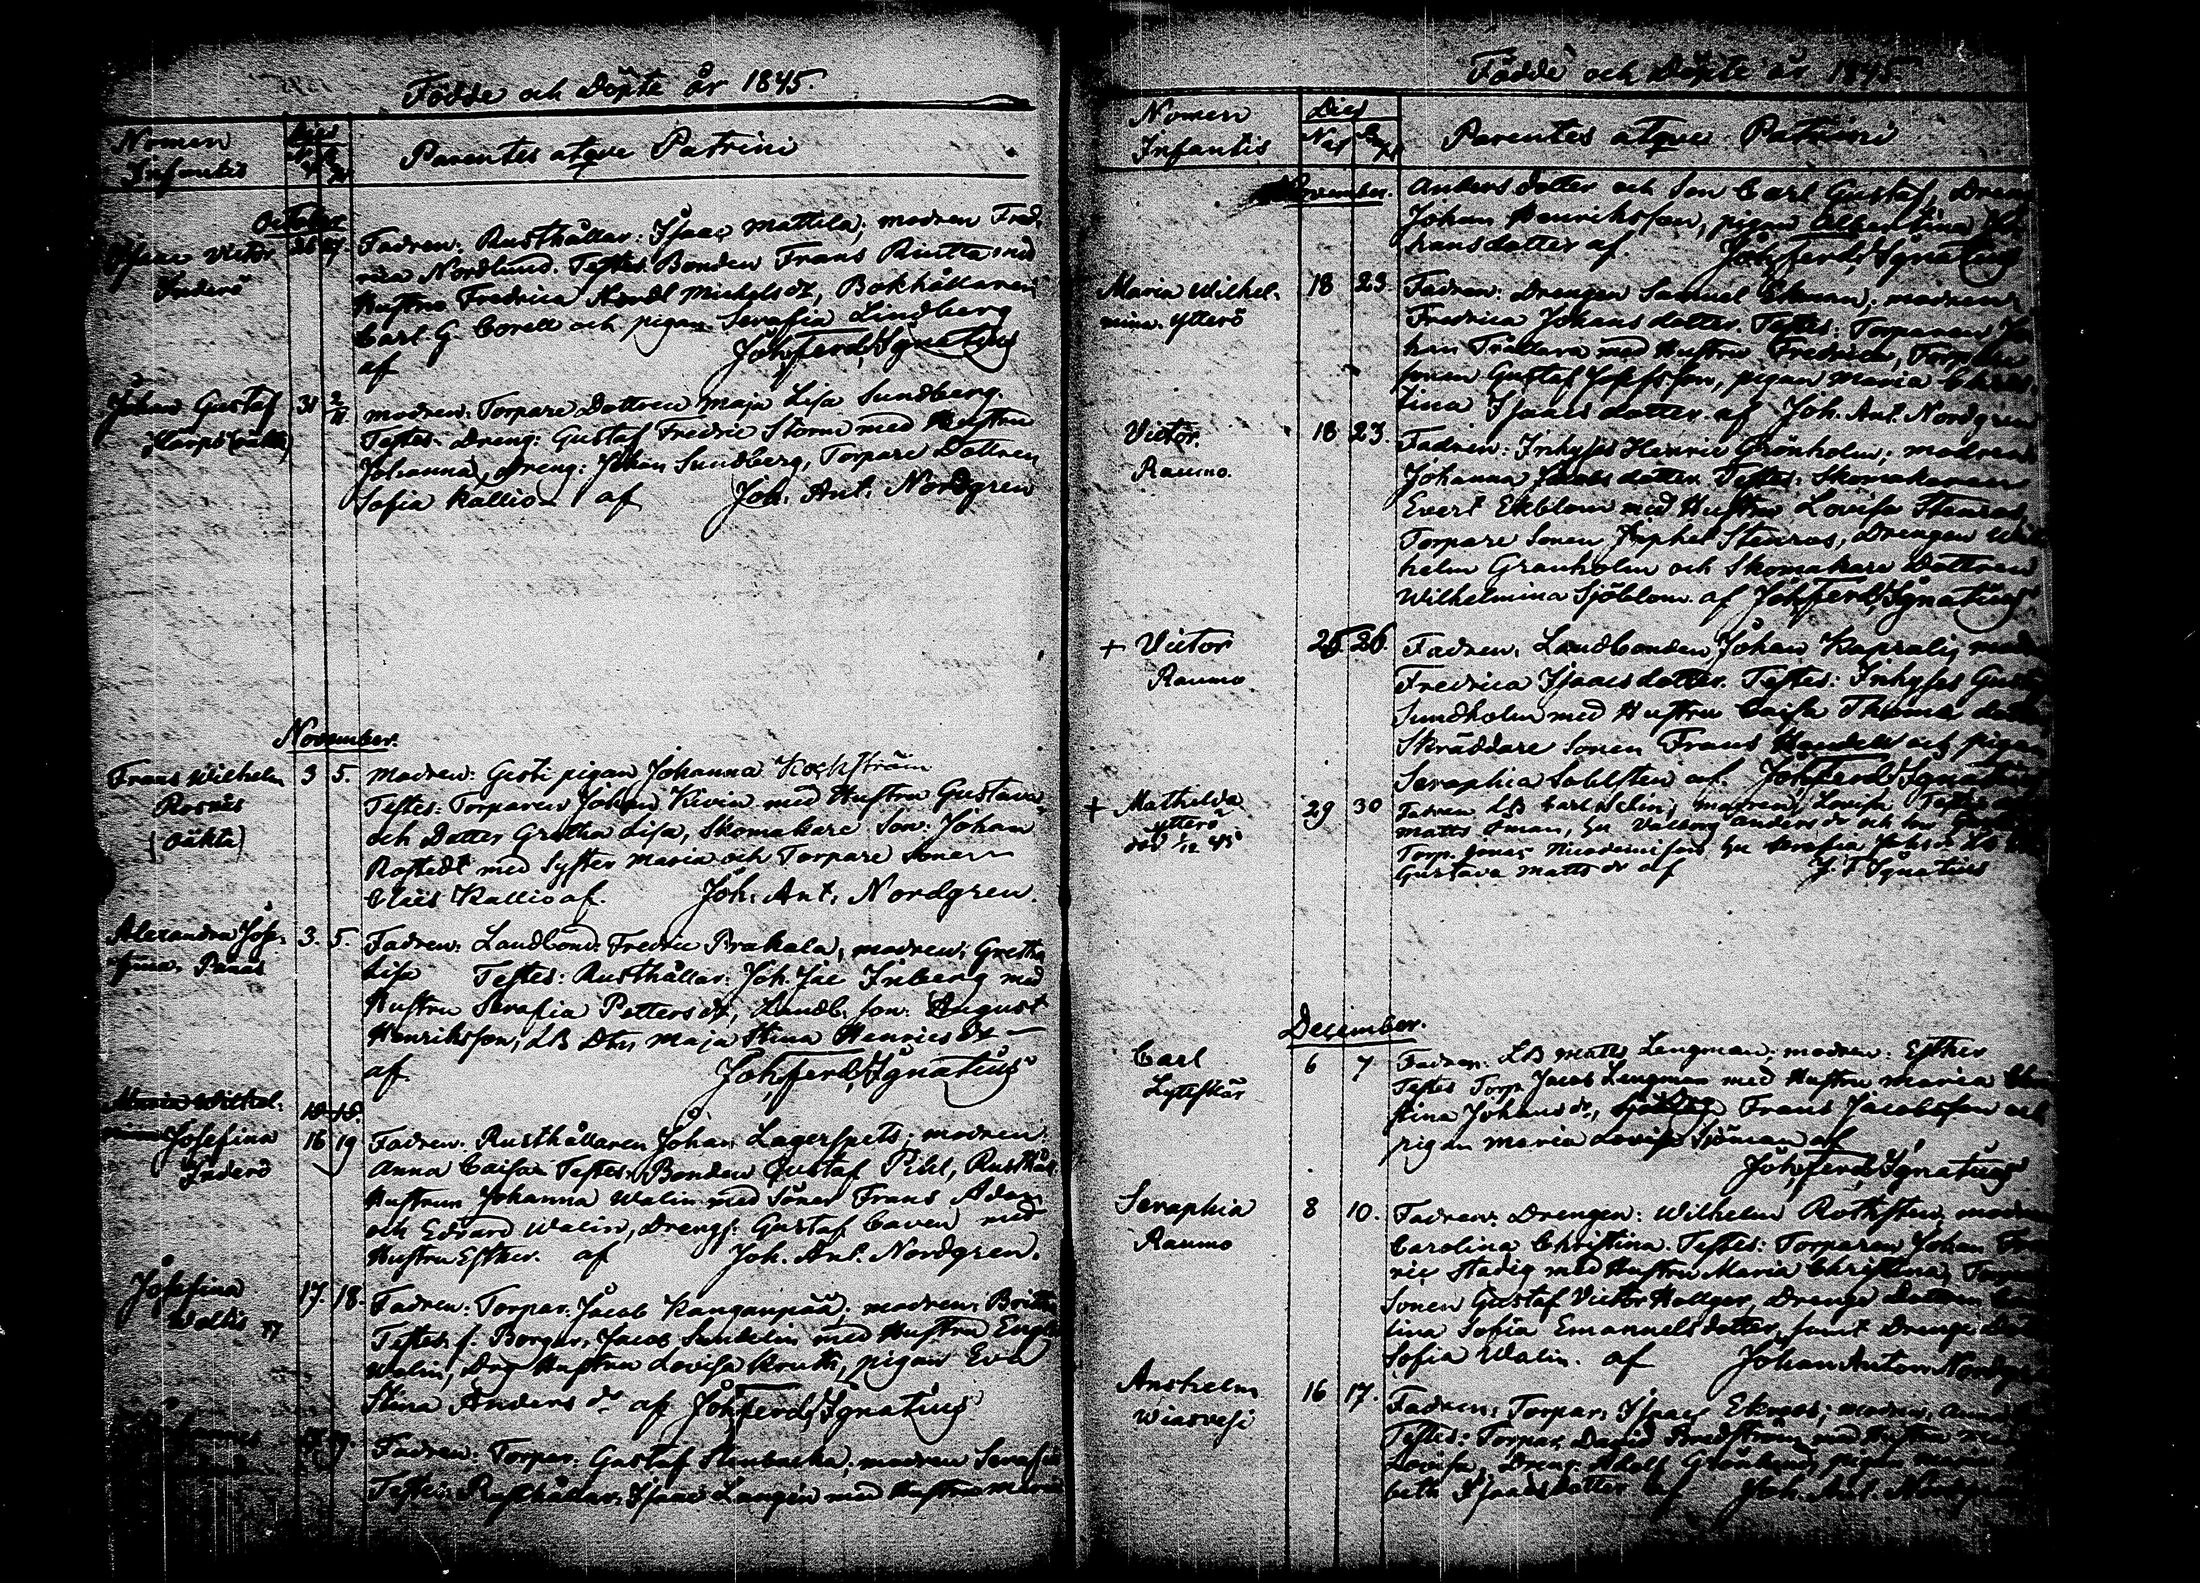 Födde och Döpte år 1845.
Nomen Infantis
Dies
Parentes atque Patrini
October.
Victor 26 27. Fadren: Rusthållar: Isaac Mattila; modren Fred-
Inderö rica Nordlund. Testes: Bonden Frans Riitta med
Hustru Fredrica Michelsdr, Bokhållaren
Carl. G. Corell och pigan Serafia Lindberg
af Joh. Ferd. Ignatius
Johan Gustaf 31 2/11 modren: Torpare Dottren Maja Lisa Sundberg.
(oäkta) Testes. Dreng: Gustaf Fredric Storm med Hustru
Johanna, dreng: Johan Sundberg, Torpare Dottren
Sofia Kallio af Joh. Ant. Nordgren
November.
Frans Wilhelm 3 5. modren: Gesti pigan Johanna Kockström
Rosnäs Testes: Torparen Johan Kivin med Hustru Gustava
(oäkta) och Dotter Gretha Lisa, Skomakare Son: Johan
Rostedt med Syster Maria och Torpare Sonen
Kallio af. Joh. Ant. Nordgren.
Alexandra Jose- 3. 5. Fadren: Landbond: Fredric Prakala, modren: Gretha
fina. Pänäs Lisa Testes: Rusthållar: Joh. Jac Inberg med
Hustru Serafia Pettersdr, Landb. son: August
Henriksson, LB Dtr, Maja Stina Henricsdr
af. Joh. Ferd. Ignatius
Maria Wilhel- 18. 18.
mina Josefina 16 19 Fadren. Rusthållaren Johan Lagerspets, modren
Inderö Anna Caisa Testes: Bonden Gustaf Pihl, Rusthål.
Hustrun Johanna Walin med Söner Frans Adam
och Edvard Walin, Drengs: Gustaf Caven med
Hustru Esther. af Joh. Ant. Nordgren.
Josefina 17. 18. Fadren: Torpar: Jacob Kanganpää; modren: Britta
Testes: f. Borgar: Jacob Sundelin med Hustru
Walin, Drg Hustru Lovisa Kruth, pigan Eva
Stina Andersdr af Joh. Ferd. Ignatius
Fadren: Torpar: Gustaf Stenbacka, modren Serafia
Testes: Rusthållar: Isaac Langin med Hustru Maria
Födde och Döpte år 1845.
Nomen Infantis
Dies
Nat
Parentes atque Patrini
November. Anders dotter och Son Carl Gustaf, Dreng
Johan Henriksson, pigan Albertina
hansdotter af. Joh. Ferd. Ignatius
Maria Wilhel- 18 23. Fadren: Drengen Samuel Ekman; modren:
mina. Ytterö Fredrica Johansdotter. Testes: Torparen Jo-
han med Hustru Fredrica, Torpare
sonen Gustaf Josefsson, pigan Maria Chris-
tina Isaacsdotter. af Joh. Ant. Nordgren
Victor. 18 23. Fadren: Inhyses Henric Grönholm; modren:
Raumo. Johanna Jacobsdotter. Testes: Skomakaren
Evert Ekblom med Hustru Lovisa Stenros,
Torpare Sonen Stenros, Drengen Wil-
helm Granholm och Skomakare Dottren
Wilhelmina Sjöblom. af Joh. Ferd. Ignatius
+ Victor 25. 26. Fadren: Landbonden Johan Kaprali; modren
Raumo Fredrica Isaacsdotter. Testes: Inhyses Gustaf
Sundholm med Hustru Caisa Thomas dotter
Skräddare Sonen Frans och pigan
Seraphia Sahlsten af. Joh. Ferd. Ignatius
+ Mathilda 29 30 Fadren LB Carl Selin; modren Lovisa Testes
Ytterö Matts Öman, hu Valborg Andersdr och son
död 1/12 45 Torp. Jonas Nicodemisson hu Serafia
Gustava Mattsdr af J. F Ignatius
December.
Carl 6 7 Fadren: LB Matts Lengman; modren: Esther
Lyttskär Testes Torp. Jacob Lengman med Hustru Maria
Stina Johansdr, Frans Jacobsson och
pigan Maria Lovisa Sjöman af
Joh. Ferd. Ignatius
Seraphia 8 10. Fadren: Drengen: Wilhelm Rothsten, modren
Raumo Carolina Christina. Testes: Torparen Johan Fred-
ric Stadig med Hustru Maria Christina, Torpare
Sonen Gustaf Victor Hollger, Drenge Dottren
tina Sofia Emanuelsdotter, samt Drenge
Sofia Walin. af Johan Anton Nordgren
Anshelm 16 17. Fadren: Torpar: Isaac Ekroos; modren: Anna
Wiasvesi Testes: Torpar David med Hustru
Lovisa, Dreng: Adolf Grönlund, pigan Maria
beth Isaacsdotter af Joh. Ant. Nordgren